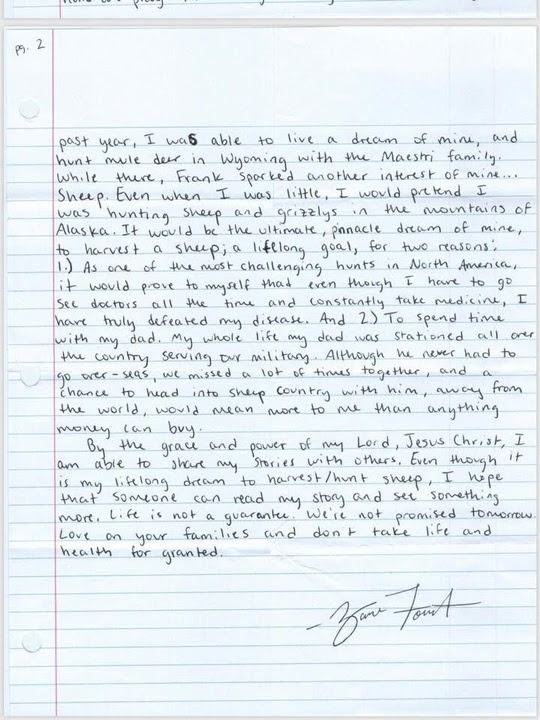 pg. 2
past year, I was able to live a dream of mine, and
hunt mule deer in Wyoming with the Maestri family.
While there, Frank sparked another interest of mine...
Sheep. Even when I was little, I would pretend I
was hunting sheep and grizzlys in the mountains of
Alaska. It would be the ultimate, pinnacle dream of mine,
to harvest a sheep; a lifelong goal, for two reasons:
1.) As one of the most challenging hunts in North America,
it would prove to myself that even though I have to go
see doctors all the time and constantly take medicine, I
have truly defeated my disease. And 2.) To spend time
with my dad. My whole life my dad was stationed all over
the country serving our military. Although he never had to
go over-seas, we missed a lot of times together, and a
chance to head into sheep country with him, away from
the world, would mean more to me than anything
money can buy.
By the grace and power of my Lord, Jesus Christ, I
am able to share my stories with others. Even though it
is my lifelong dream to harvest/hunt sheep, I hope
that someone can read my story and see something
more. Life is not a guarantee. We're not promised tomorrow.
Love on your families and don't take life and
health for granted.